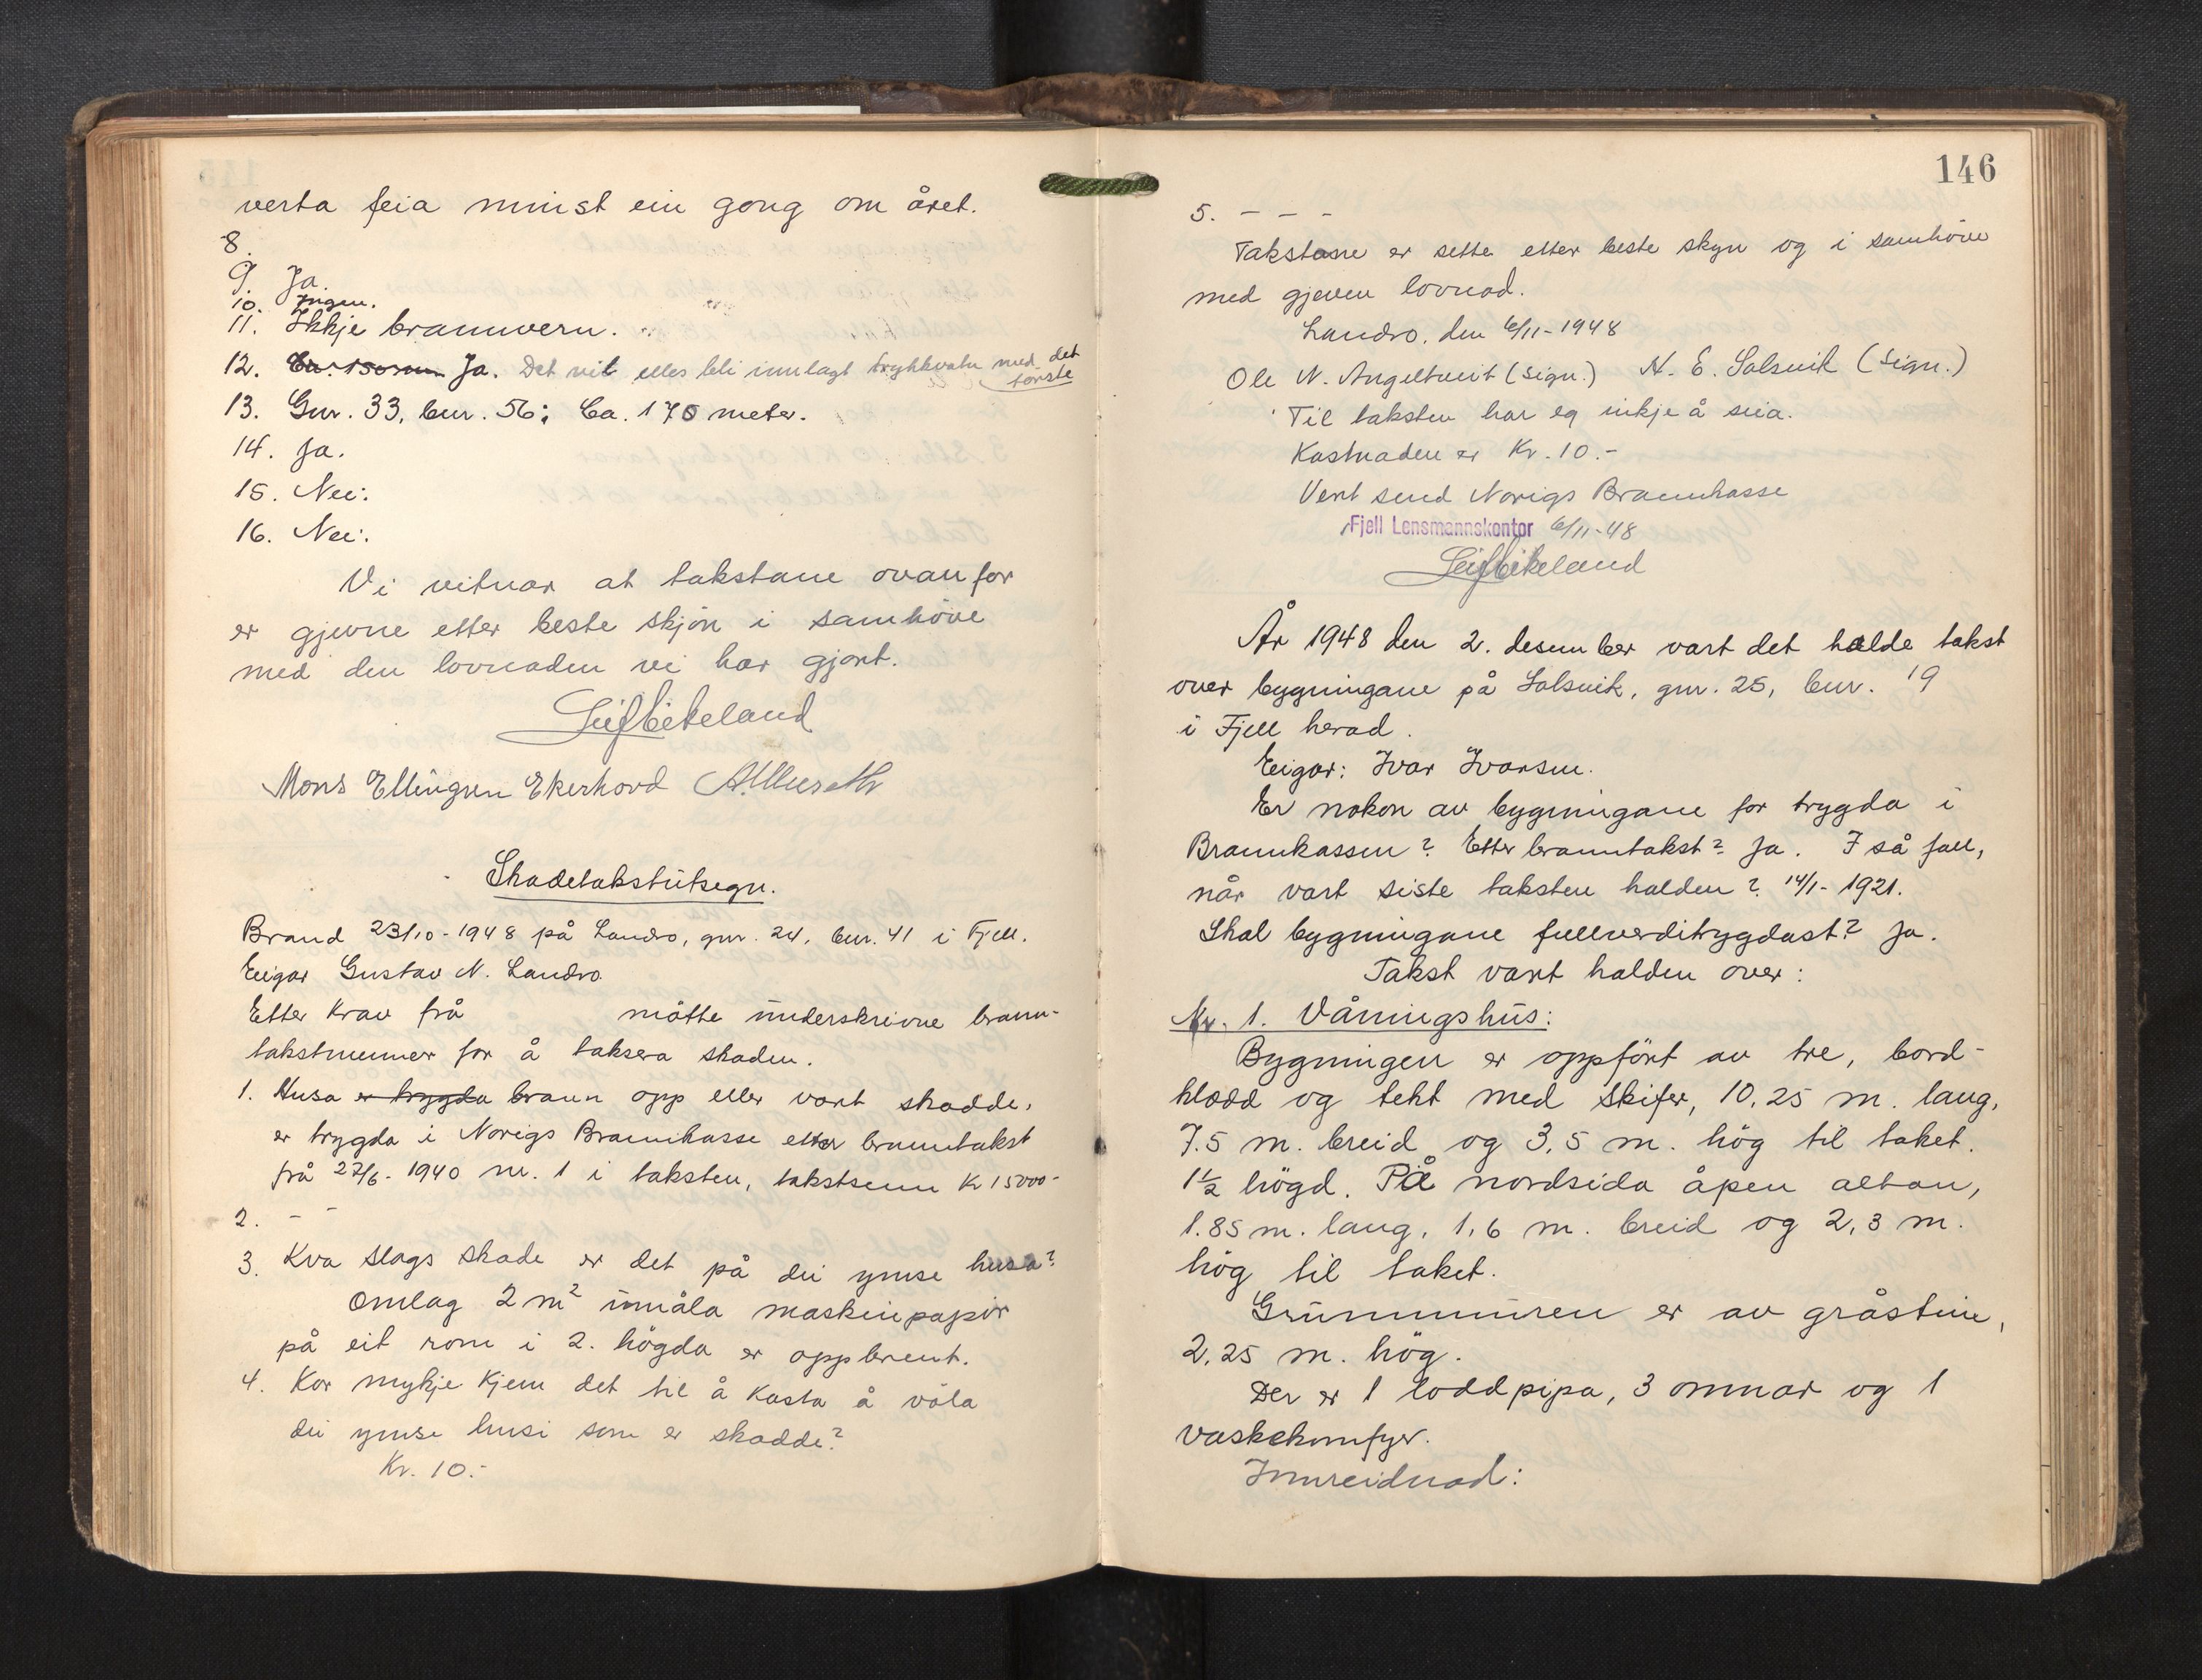 verta feia minst ein gong om året.
8.
9. Ja.
10. Ingen.
11. Ikkje brannvern.
12. Ja. Det vil elles bli innlagt trykkvatn med det
første
13. Gnr. 33, bnr. 56; Ca. 170 meter.
14. Ja.
15. Nei.
16. Nei.
Vi vitnar at takstane ovanfor
er gjevne etter beste skjön i samhöve
med den lovnaden vi har gjort.
Leif Eikeland
Mons Ellingsen Ekerhovd
Skadetakstútsegn.
Brand 23/10-1948 på Landro, gnr. 24, bnr. 41 i Fjell.
Eigar Gustav N. Landro
Etter krav frå mötte underskrivne brann-
takstmenner for å taksera skaden.
1. Husa er trygda brann opp eller vart skadde,
er trygda i Norigs Brannkasse etter branntakst
frå 27/6-1940 nr. 1 i taksten, takstsum Kr 15000-
2. - -
3. Kva slags skade er det på dei ymse husa?
Omlag 2 m² úmåla maskinpapir
på eit rom i 2. högda er oppbrent.
4. Kor mykje kjem det til å kosta å völa
dei ymse husi som er skadde?
Kr. 10.-
146
5. - - -
Takstane er sette etter beste skyn og i samhöve
med gjeven lovnad.
Landro, den 6/11-1948
Ole N. Angeltveit (sign.) N. E. Solsvik (Sign.)
Til taksten har eg inkje å seia.
Kostnaden er Kr. 10.-
Vert send Norigs Brannkasse
Fjell Lensmannskontor 6/11-48
Leif Eikeland
År 1948 den 2. desember vart det halde takst
over bygningane på Solsvik, gnr. 25, bnr. 19
i Fjell herad.
Eigar: Ivar Ivarsen.
Er nokon av bygningane for trygda i
Brannkassen? Etter branntakst? Ja. I så fall,
når vart siste taksten halden? 14/1-1921.
Skal bygningane fullverditrygdast? Ja.
Takst vart halden over:
Nr. 1. Våningshús:
Bygningen er oppfört av tre, bord-
kledd og tekt med skifer, 10,25 m. lang,
7.5 m. breid og 3,5 m. hög til taket.
1½ högd. På nordsida åpen altan,
1.85 m. lang, 1,6 m. breid og 2,3 m.
hög til taket.
Grúnnmúren er av gråstein,
2,25 m. hög.
Der er 1 loddpipa, 3 omnar og 1
vaskekomfyr.
Innreidnad: